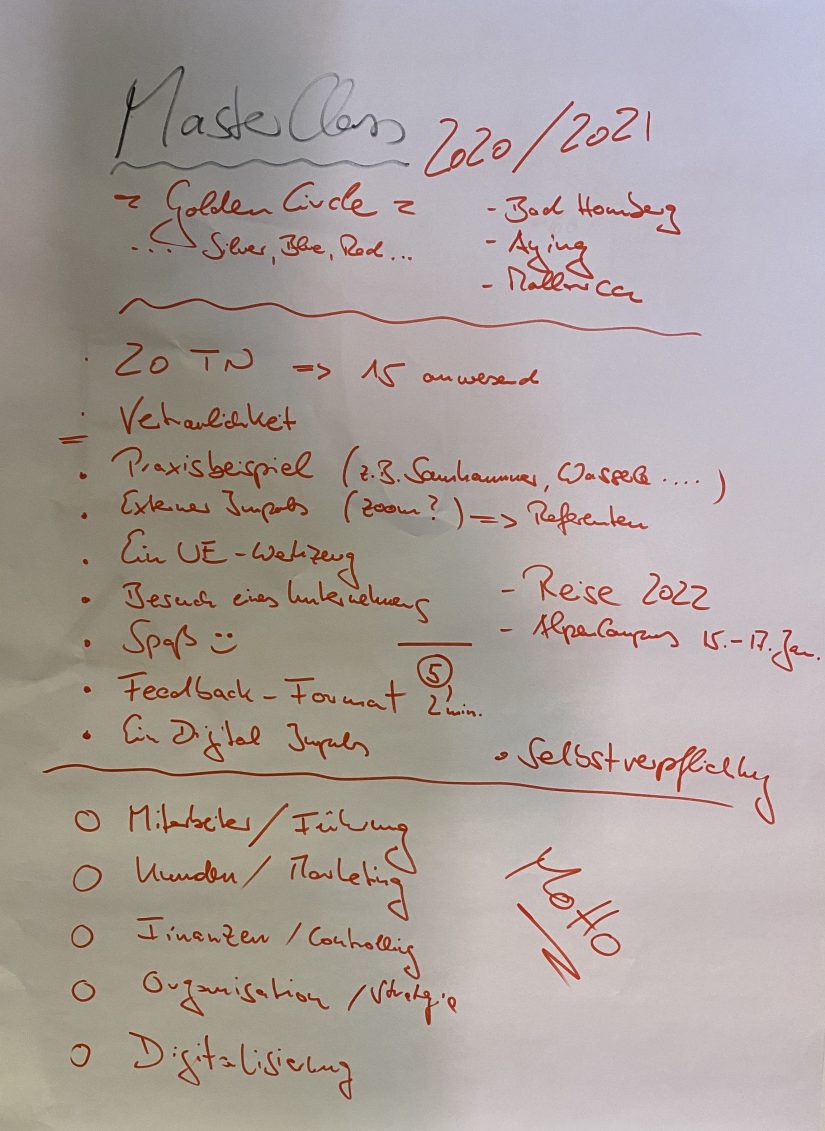 MasterClass 2020/2021
- Golden Circle -
... Silver, Blue, Red...
- Bad Homberg
- Aying
- Mallorca
· 20 TN => 15 anwesend
· Vertraulichkeit
· Praxisbeispiel (z.B. Samhammer, ....)
· Externer Impuls (zoom?) => Referenten
· Ein UE-Werkzeug
· Besuch eines Unternehmens
- Reise 2022
- AlpenCampus 15.-17. Jan.
· Spaß :)
· Feedback-Format 5 2 min.
· Ein Digital Impuls
· Selbstverpflichtung
O Mitarbeiter/Führung
O Kunden/Marketing
O Finanzen/Controlling
O Organisation/Strategie
O Digitalisierung
Motto